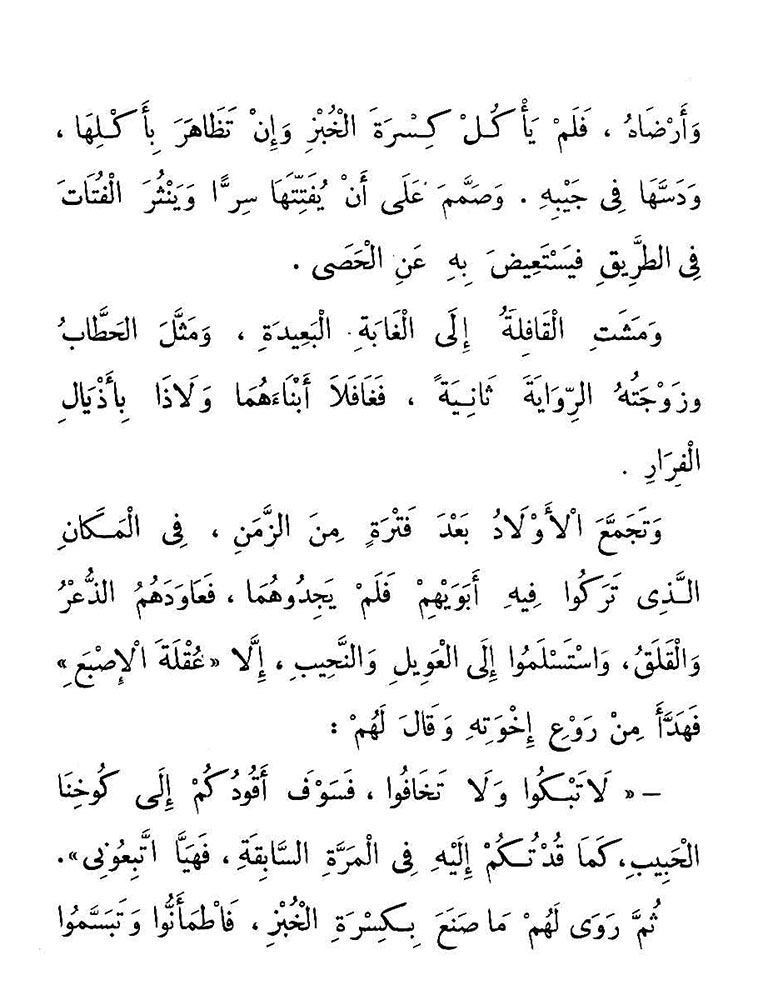 وَأَرْضَاهُ ، فَلَمْ يَأْكُلْ كِسْرَةَ الْخُبْزِ وَإِنْ تَظَاهَرَ بِأَكْلِهَا ،
وَدَسَّهَا فِى جَيْبِهِ . وَصَمَّمَ عَلَى أَنْ يُفَتِّتَهَا سِرًّا وَيَنْثُرَ الْفُتَاتَ
فِى الطَّرِيقِ فَيَسْتَعِيضَ بِهِ عَنِ الْحَصَى .
وَمَشَتِ الْقَافِلَةُ إِلَى الْغَابَةِ الْبَعِيدَةِ ، وَمَثَّلَ الحَطَّابُ
وزَوْجَتُهُ الرِّوَايَةَ ثَانِيَةً ، فَغَافَلَا أَبْنَاءَهُمَا وَلَاذَا بِأَذْيَالِ
الْفِرَارِ .
وَتَجَمَّعَ الْأَوْلَادُ بَعْدَ فَتْرَةٍ مِنَ الزَّمَنِ ، فِى الْمَكَانِ
الَّذِى تَرَكُوا فِيهِ أَبَوَيْهِمْ فَلَمْ يَجِدُوهُمَا ، فَعَاوَدَهُمُ الذُّعْرُ
وَالْقَلَقُ ، وَاسْتَسْلَمُوا إِلَى الْعَوِيلِ وَالنَّحِيبِ ، إِلَّا « عُقْلَةَ الْإِصْبَعِ »
فَهَدَّأَ مِنْ رَوْعِ إِخْوَتِهِ وَقَالَ لَهُمْ :
— « لَا تَبْكُوا وَلَا تَخَافُوا ، فَسَوْفَ أَقُودُكُمْ إِلَى كُوخِنَا
الْحَبِيبِ ، كَمَا قُدْتُكُمْ إِلَيْهِ فِى الْمَرَّةِ السَّابِقَةِ ، فَهَيَّا اتَّبِعُونِى » .
ثُمَّ رَوَى لَهُمْ مَا صَنَعَ بِكِسْرَةِ الْخُبْزِ ، فَاطْمَأَنُّوا وَتَبَسَّمُوا